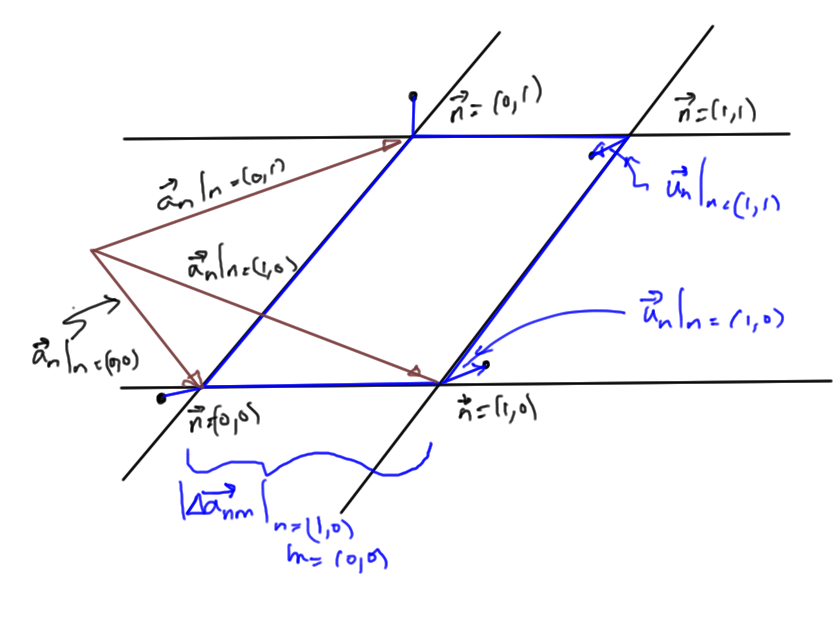 n⃗ = (0,1)
n⃗ = (1,1)
a⃗ₙ|ₙ₌₍₀,₁₎
u⃗ₙ|ₙ₌₍₁,₁₎
a⃗ₙ|ₙ₌₍₁,₀₎
u⃗ₙ|ₙ₌₍₁,₀₎
a⃗ₙ|ₙ₌₍₀,₀₎
n⃗=(0,0)
n⃗=(1,0)
|Δa⃗ₙₘ|
n=(1,0)
m=(0,0)